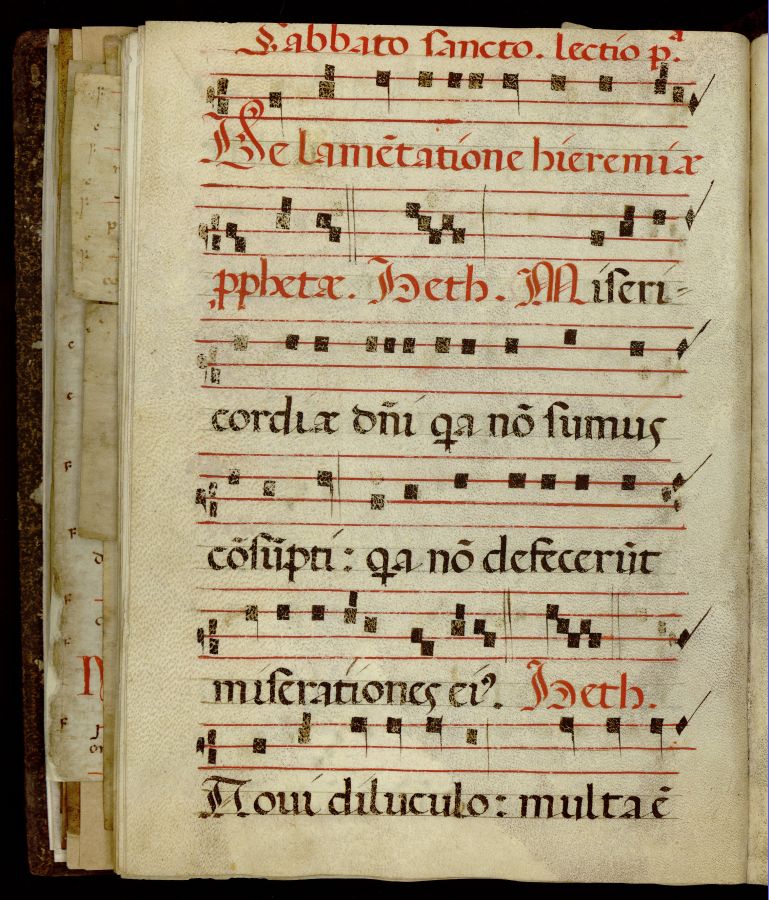 Sabbato sancto. lectio p.ª
De lamẽtatione hieremiæ
ꝓphetæ. Heth. Miseri-
cordiæ dñi qa nõ sumus
cõsũpti: qa nõ defecerũt
miserationes eiꝰ. Heth.
Noui diluculo: multa ẽ